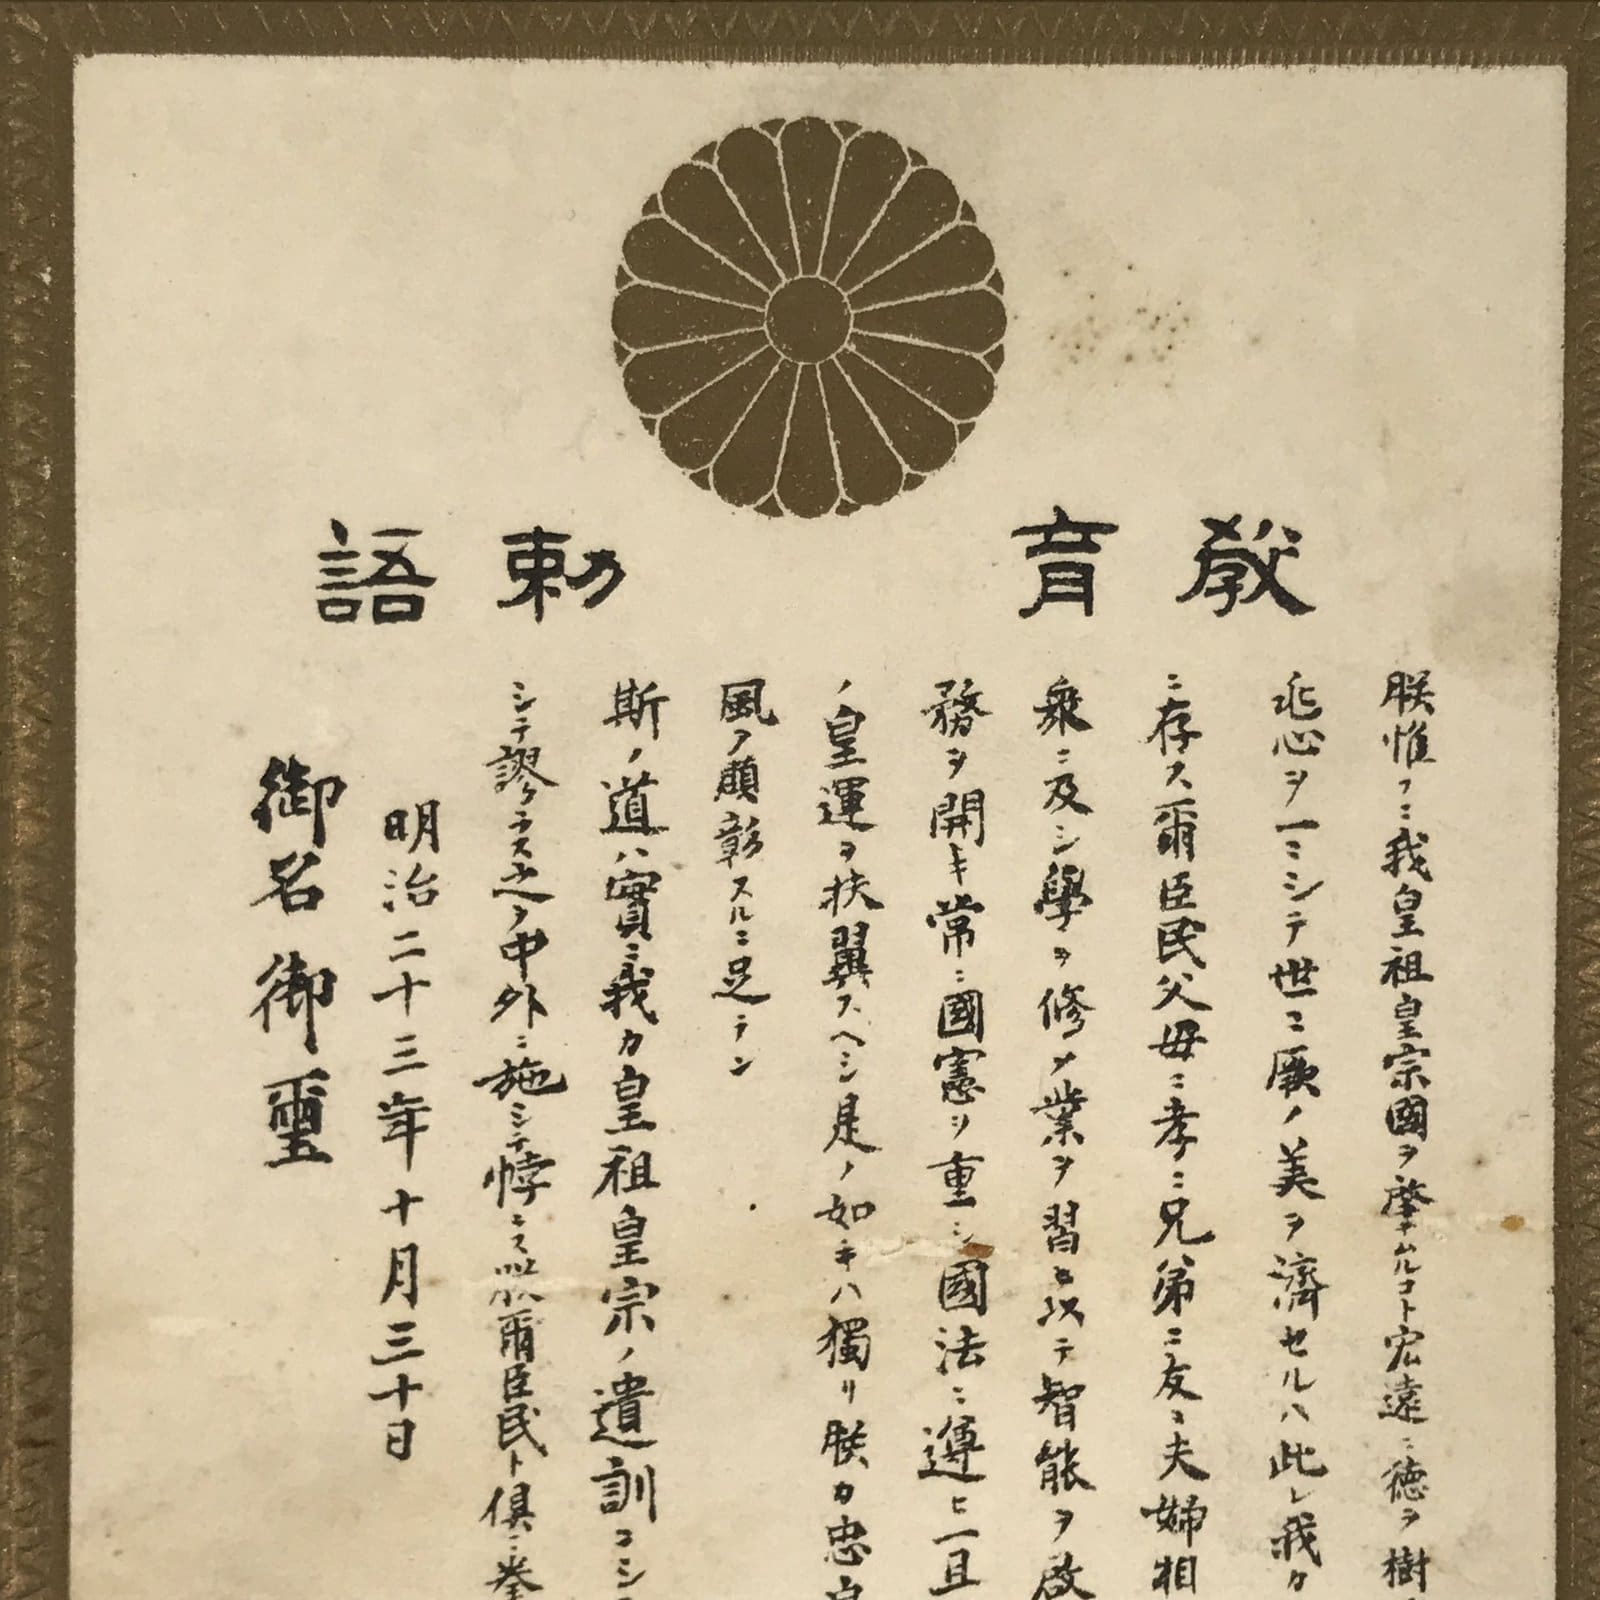 教育勅語
朕惟フニ我皇祖皇宗國ヲ肇ムルコト宏遠ニ徳ヲ樹
兆心ヲ一ニシテ世々厥ノ美ヲ濟セルハ此レ我カ
ニ存ス爾臣民父母ニ孝ニ兄弟ニ友ニ夫婦相
衆ニ及シ學ヲ修メ業ヲ習ヒ以テ智能ヲ啓
務ヲ開キ常ニ國憲ヲ重シ國法ニ遵ヒ一旦
ノ皇運ヲ扶翼スヘシ是ノ如キハ獨リ朕カ忠良
風ヲ顯彰スルニ足ラン
斯ノ道ハ實ニ我カ皇祖皇宗ノ遺訓ニシ
シテ謬ラス之ヲ中外ニ施シテ悖ラス朕爾臣民ト倶ニ拳
明治二十三年十月三十日
御名御璽